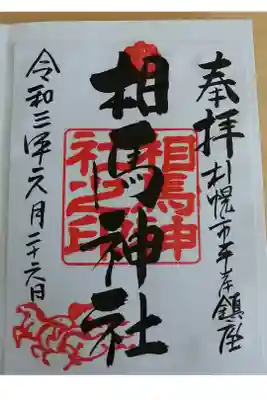 奉拝
札幌市平岸鎮座
相馬神社
相馬神
社之印
令和三年六月二十六日